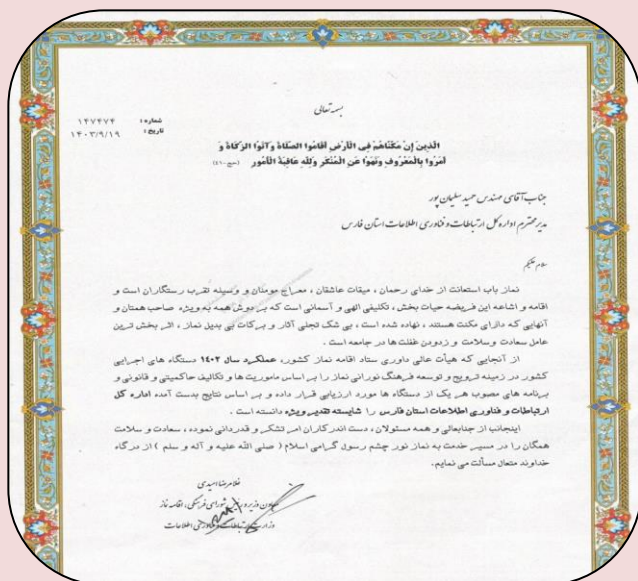 بسمه تعالی
شماره : ۱۴۷۴۷۴
تاریخ : ۱۴۰۳/۹/۱۹
الَّذِینَ إِن مَّکَّنَّاهُمْ فِی الْأَرْضِ أَقَامُوا الصَّلَاةَ وَآتَوُا الزَّکَاةَ وَ
أَمَرُوا بِالْمَعْرُوفِ وَنَهَوْا عَنِ الْمُنکَرِ وَلِلَّهِ عَاقِبَةُ الْأُمُورِ (حج-٤١)
جناب آقای مهندس حمید سلیمان پور
مدیر محترم اداره کل ارتباطات و فناوری اطلاعات استان فارس
سلام علیکم
نماز باب استعانت از خدای رحمان ، میقات عاشقان ، معراج مومنان و وسیله تقرب رستگاران است و
اقامه و اشاعه این فریضه حیات بخش ، تکلیفی الهی و آسمانی است که بر دوش همه به ویژه صاحب همتان و
آنهایی که دارای مکنت هستند ، نهاده شده است ، بی شک تجلی آثار و برکات بی بدیل نماز ، اثر بخش ترین
عامل سعادت و سلامت و زدودن غفلت ها در جامعه است .
از آنجایی که هیأت عالی داوری ستاد اقامه نماز کشور، عملکرد سال ۱۴۰۲ دستگاه های اجرایی
کشور در زمینه ترویج و توسعه فرهنگ نورانی نماز را بر اساس ماموریت ها و تکالیف حاکمیتی و قانونی و
برنامه های مصوب هر یک از دستگاه ها مورد ارزیابی قرار داده و بر اساس نتایج بدست آمده اداره کل
ارتباطات و فناوری اطلاعات استان فارس را شایسته تقدیر ویژه دانسته است .
اینجانب از جنابعالی و همه مسئولان ، دست اندر کاران امر تشکر و قدردانی نموده ، سعادت و سلامت
همگان را در مسیر خدمت به نماز نور چشم رسول گرامی اسلام ( صلی الله علیه و آله و سلم ) از درگاه
خداوند متعال مسألت می نمایم.
غلامرضا امیدی
معاون وزیر و شورای فرهنگی ، اقامه نماز
وزارت ارتباطات و فناوری اطلاعات